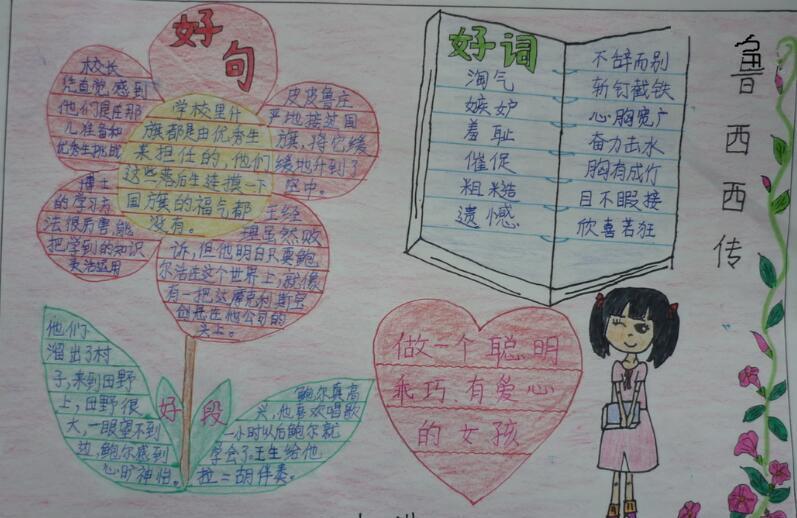 好句
校长
凭直觉,感到
他们是在那
儿准备和
优秀生挑战
学校里升
旗都是由优秀生
来担任的,他们
这些差后生连摸一下
国旗的福气都
没有。
皮皮鲁庄
严地接过国
旗,将它缓
缓地升到了
空中。
博士
的学习方
法很厉害,能
把学到的知识
灵活运用
王经
理虽然败
诉,但他明白只要鲍
尔活在这个世界上,就像
有一把达摩克利斯宝
剑悬在他公司的
头上。
好段
他们
溜出了村
子,来到田野
上,田野很
大,一眼望不到
边,鲍尔感到
心旷神怡。
鲍尔真高
兴,他喜欢唱歌
一小时以后鲍尔就
学会了,王生给他
拉二胡伴奏。
好词
淘气
嫉妒
羞耻
催促
粗糙
遗憾
不辞而别
斩钉截铁
心胸宽广
奋力击水
胸有成竹
目不暇接
欣喜若狂
做一个聪明
乖巧、有爱心
的女孩
鲁西西传